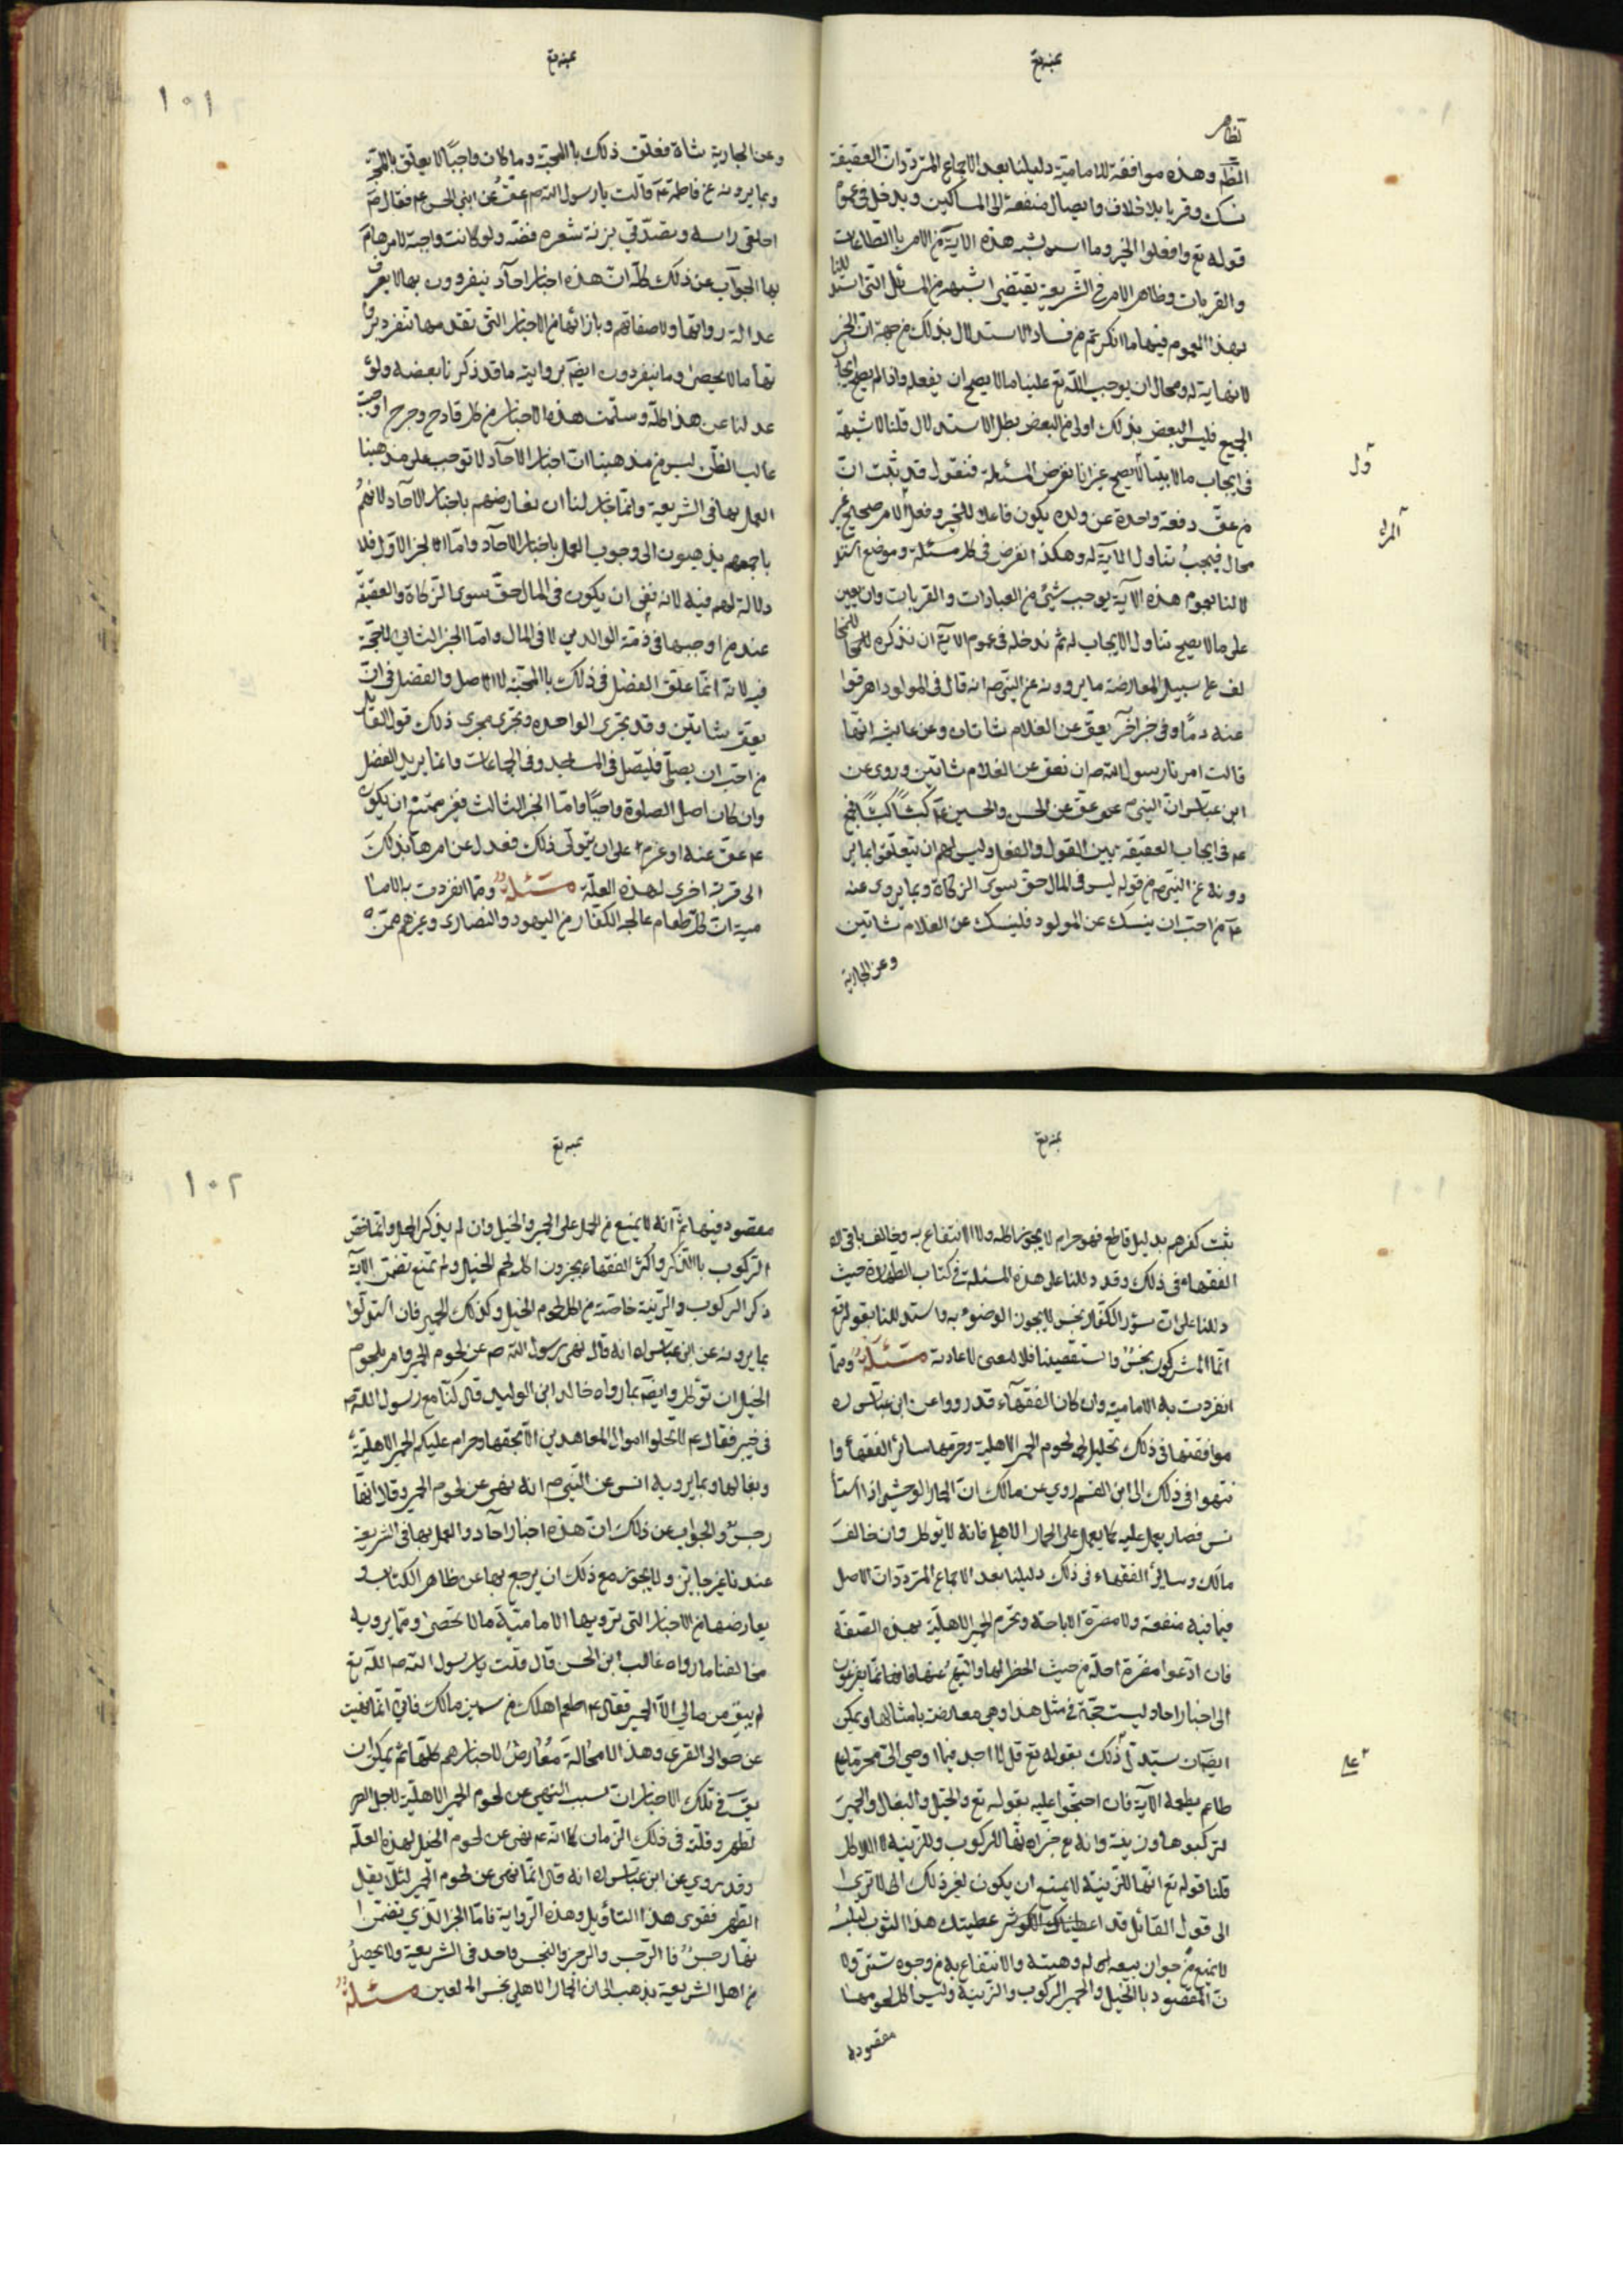 تظاهر
الظهر وهذه موافقة للامامية دليلنا بعد الاجماع المتردد ان العقيقة
نسك وقربا بلا خلاف وايصال منفعة الى المساكين ويدخل في عموم
قوله تع وافعلوا الخير وما اشبه هذه الاية من الامر بالطاعات
والقربات وظاهر الامر في الشريعة يقتضي
بهذا العموم فيها ما انكرتم من فساد الاستدلال بذلك من جهة ان الخير
لا نهاية له ومحال ان يوجب الله تع علينا ما لا يصح ان يفعله واذا لم يصح ايجاب
الجميع فليس البعض بذلك اولى من البعض بطل الاستدلال قلنا لا شبهة
في ايجاب ما لا يصح غير انا نفرض المسئلة فنقول قد ثبت ان
من عق دفعة واحدة عن ولده يكون فاعلا للخير وفعل الامر صحيح غير
محال فيجب تناول الاية له وهكذا نفرض في كل مسئلة وموضع استد
لالنا بعموم هذه الاية يوجب شيئ من العبادات والقربات وان تعين
على ما لا يصح تناول الايجاب له ثم ندخله في عموم الاية ان نذكره للمخا
لف على سبيل المعارضة ما يروونه عن النبي ص انه قال في المولود اهرقوا
عنه دما وفي خبر اخر يعق عن الغلام شاتان وعن عايشه انها
قالت امرنا رسول الله ص ان نعق عن الغلام شاتين وروى عن
ابن عباس ان النبي ص عق عن الحسن والحسين ع كبشا كبشا فجمع
ع في ايجاب العقيقة بين القول والفعل وليس لهم ان يتعلقوا بما ير
وونه عن النبي ص من قوله ليس في المال حق سوى الزكاة وبما يروى عنه
ع من احب ان ينسك عن المولود فلينسك عن الغلام شاتين
وعن الجارية
١٠١
وعن الجارية شاة فعلق ذلك بالمحبة وما كان واجبا لا يعلق بالمحبة
وبما يرونه عن فاطمة ع قالت يا رسول الله ص اعق عن ابني الحسن ع فقال ص
احلقي راسه وتصدقي بزنة شعره فضة ولو كانت واجبة لامرها ع
بها الجواب عن ذلك كله ان هذه اخبار احاد ينفردون بها لا يعرف
عدالة رواتها ولا صفاتهم وبازائها من الاخبار التي تقدمها تنفرد بروا
تها ما لا يحصى وما ينفردون ايضا بروايته ما قد ذكرنا بعضه ولو
عدلنا عن هذا كله وسلمت هذه الاخبار من كل قادح وجرح اوجبت
غالب الظن ليس من مذهبنا ان اخبار الاحاد لا توجب على مذهبنا
العمل بها في الشريعة وانما جاز لنا ان نعارضهم باخبار الاحاد لانهم
باجمعهم يذهبون الى وجوب العمل باخبار الاحاد واما الخبر الاول فلا
دلالة لهم فيه لانه نفي ان يكون في المال حق سوى الزكاة والعقيقة
عند من اوجبها في ذمة الوالدين لا في المال واما الخبر الثاني للحجة
فيه لانه انما علق الفضل في ذلك بالمحبة لا الاصل والفضل في ان
يعق بشاتين وقد تجزى الواحدة وتجرى مجرى ذلك قول القائل
من احب ان يصلي فليصل في المساجد وفي الجماعات وانما يريد الفضل
وان كان اصل الصلوة واجبا واما الخبر الثالث فغير ممتنع ان يكون
ع عق عنه او عزم على ان يتولى ذلك فعدل عن امرها بذلك
الى قربة اخرى لهذه العلة مسئلة ومما انفردت به الاما
مية ان كل طعام عالجه الكفار من اليهود والنصارى وغيرهم ممن
ثبت كفرهم بدليل قاطع فهو حرام لا يجوز اكله ولا الانتفاع به ويخالف باقي
الفقهاء في ذلك وقد دللنا على هذه المسئلة في كتاب الطهارة حيث
دللنا على ان سؤر الكفار نجس لا يجوز الوضوء به واستدللنا بقوله تع
انما المشركون نجس واستقصينا فلا معنى لاعادته مسئلة ومما
انفردت به الامامية وان كان الفقهاء قد رووا عن ابن عباس ره
موافقتها في ذلك تحليل لحوم الحمر الاهلية وحرمها سائر الفقهاء وا
نتهوا في ذلك الى ابن القسم روي عن مالك ان الحمار الوحشي اذا استا
نس فصار يعمل عليه كما يعمل على الحمار الاهلي فانه لا يؤكل وان خالف
مالك وسائر الفقهاء في ذلك دليلنا بعد الاجماع المتردد ان الاصل
فيما فيه منفعة ولا مضرة الاباحة وتحرم الحمر الاهلية بهذه الصفة
فان ادعوا مضرة اجلة من حيث الحظر لها والنهي عنها فانما يفزعون
الى اخبار احاد وليست حجة في مثل هذا وهي معارضة بامثالها ويمكن
ايضا ان يستدل في ذلك بقوله تع قل لا اجد فيما اوحي الي محرما على
طاعم يطعمه الاية فان احتجوا عليه بقوله تع والخيل والبغال والحمير
لتركبوها وزينة وانه ع خبر انها للركوب وللزينة لا للاكل
قلنا قوله تع انها للزينة لا يمنع ان يكون لغير ذلك الا ترى
الى قول القائل قد اعطيتك هذا الثوب لتلبسه
لا يمنع من جواز بيعه له وهبته والانتفاع به من وجوه شتى ولا
ن المقصود بالخيل والحمير الركوب والزينة وليس اكل لحومها
مقصودا
١٠٢
مقصود فيها ثم انه لا يمنع من الحمل على الحمير والخيل وان لم يذكر الحمل وانما خص
الركوب بالذكر واكثر الفقهاء يجيزون اكل لحم الخيل ولم تمنع تضمن الاية
ذكر الركوب والزينة خاصة من اكل لحوم الخيل وكذلك الحمير فان استدلوا
بما يرونه عن ابن عباس ره انه قال نهى رسول الله ص عن لحوم الحمر وامر بلحوم
الخيل ان تؤكل وايضا بما رواه خالد ابن الوليد قال كنا مع رسول الله ص
في خيبر فقال ع لا تحلوا اموال المعاهدين الا بحقها وحرام عليكم الحمر الاهلية
وبغالها وبما يرويه انس عن النبي ص انه نهى عن لحوم الحمر وقال انها
رجس والجواب عن ذلك ان هذه اخبار احاد والعمل بها في الشريعة
عندنا غير جائز ولا يجوز مع ذلك ان يرجع بها عن ظاهر الكتاب و
يعارضها من الاخبار التي ترويها الامامية ما لا تحصى ومما يرويه
مخالفنا ما رواه غالب ابن الحسن قال قلت يا رسول الله ص الله تع
لم يبق من مالي الا الحمير فقال ع اطعم اهلك من سمين مالك فاني انما نهيت
عن حوالي القرى وهذا لا محالة معارض لاخبارهم كلها ثم يمكن ان
يق في تلك الاخبار ان سبب النهي عن لحوم الحمر الاهلية لاجل
لظهر وقلته في ذلك الزمان كما انه ع نهى عن لحوم الخيل لهذه العلة
وقد روي عن ابن عباس ره انه قال انما نهى عن لحوم الحمر لئلا يقل
الظهر فقوى هذا التاويل وهذه الرواية فاما الخبر الذي تضمن ا
نها رجس فالرجس والرجز والنجس واحد في الشريعة ولا يحصل
من اهل الشريعة يذهب الى ان الحمار الاهلي نجس العين مسئلة